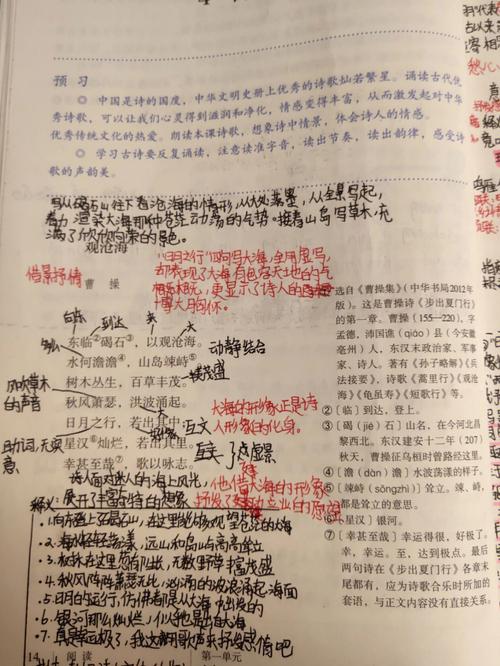 预 习
◎ 中国是诗的国度，中华文明史册上优秀的诗歌灿若繁星。诵读古代优
秀诗歌，可以让我们心灵得到滋润和净化，情感变得丰富，从而激发起对中华
优秀传统文化的热爱。朗读本课诗歌，想象诗中情景，体会诗人的情感。
◎ 学习古诗要反复诵读，注意读准字音，读出节奏，读出韵律，感受诗
歌的声韵美。
写从碣石山往下看沧海的情形，从大处落墨，从全景写起，
着力渲染大海那种苍茫动荡的气势。接着山岛写草木，充
满了欣欣向荣的景色。
观沧海
曹 操
借景抒情
"日月之行"四句写大海，全用虚写
却表现了大海有包容天地的气
博大胸怀。
到达
东临②碣石③，以观沧海。
水何澹澹④，山岛竦峙⑤。
树木丛生，百草丰茂。
秋风萧瑟，洪波涌起。
日月之行，若出其中；
星汉⑥灿烂，若出其里。
幸甚至哉⑦，歌以咏志。
动静结合
风吹草木
的声音
互文
大海的形象正是诗
人形象的化身。
诗人面对迷人的海上风光，他借大海的形象
展开了丰富奇特的想象
抒发了建功立业的愿望
释义
1.向东登上碣石山，在这里能够观望苍茫的大海
4.秋风阵阵萧瑟无比，汹涌的波浪涌起海面
5.日月的运行，仿佛都是从大海中出发的
6.银河那么灿烂，似也是出自大海
7.真是幸运极了，我这就用歌声来抒发感情吧
选自《曹操集》（中华书局2012年
版）。这是曹操诗《步出夏门行》
的第一章。曹操（155—220），字
孟德，沛国谯（qiáo）县（今安徽
亳州）人，东汉末政治家、军事
家、诗人。著有《孙子略解》《兵
法接要》，诗歌《蒿里行》《观沧
海》《龟虽寿》《短歌行》等。
②〔临〕到达，登上。
③〔碣（jié）石〕山名，在今河北昌
黎西北。东汉建安十二年（207）
秋天，曹操征乌桓时曾路经这里。
④〔澹（dàn）澹〕水波荡漾的样子。
⑤〔竦峙（sǒngzhì）〕耸立。竦、峙，
都是耸立的意思。
⑥〔星汉〕银河。
⑦〔幸甚至哉〕幸运得很，好极了。
幸，幸运。至，达到极点。最后
两句诗在《步出夏门行》各章末
尾都有，应为诗歌合乐时所加的
套语，与正文内容没有直接关系。
14 阅 读 第一单元